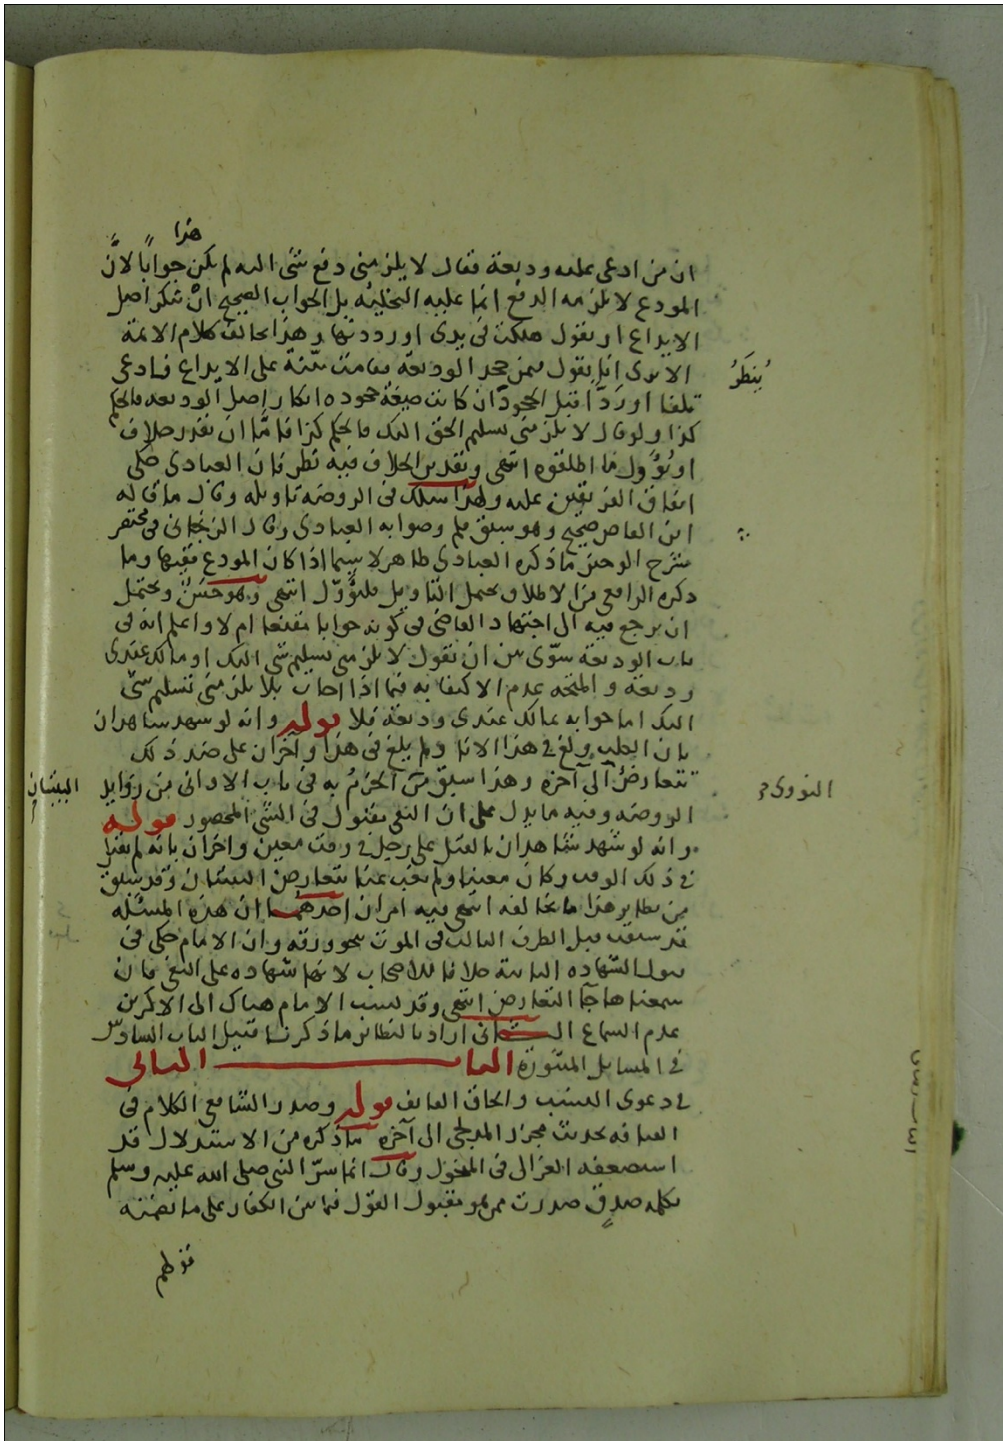 هذا
ان من ادعى عليه وديعة فقال لا يلزمني دفع شي اليه لم يكن جوابا لان
المودع لا يلزمه الدفع انما عليه التخلية بل الجواب الصحيح ان ينكر اصل
الايداع او يقول هلكت في يدي او رددتها وهذا يخالف كلام الائمة
الا ترى انا نقول فيمن جحد الوديعة فقامت بينة على الايداع فادعى
يُنظَرُ
تلفا او ردا قبل الجحود ان كانت صيغة جحوده انكار اصل الوديعة فالحكم
كذا ولو قال لا يلزمني تسليم الحق اليك فالحكم كذا فاما ان نقدر خلاف
او نُؤَوِّل ما اطلقوه انتهى وتقدير الخلاف فيه نظر فان العبادي حكى
اتفاق الفريقين عليه ولهذا سلك في الروضة تاويله وقال ما قاله
ابن القاص صحيح وهو سبق قلم وصوابه العبادي وقال الزنجاني في مختصر
شرح الوجيز ما ذكره العبادي ظاهر لا سيما اذا كان المودع فقيها وما
ذكره الرافعي من الاطلاق يحتمل التاويل فليؤوّل انتهى وهو حَسَنٌ ويحتمل
ان يرجع فيه الى اجتهاد القاضي في كونه جوابا مقنعا ام لا واعلم انه في
باب الوديعة سوّى بين ان يقول لا يلزمني تسليم شي اليك او مالك عندي
وديعة والمتجه عدم الاكتفا به فيما اذا اجاب بلا يلزمني تسليم شي
اليك اما جوابه بمالك عندي وديعة فلا قوله وانه لو شهد شاهدان
بان الكلب ولغ في هذا الانا ولم يلغ في هذا وآخران على ضد ذلك
تتعارضُ آلى آخره وهذا سبق من الجزمُ به في باب الاواني من زوايد
النووي
البينتان
الروضة وفيه ما يدل على ان النفي مقبول في الشي المحصور قوله
وانه لو شهد شاهدان بالقتل على رجل في وقت معين واخران بانه لم يقتل
في ذلك الوقت وكان معينا ولم يغب عنا يتعارض البينتان وقد سبق
من نظاير هذا ما يخالفه انتهى فيه امران احدهما ان هذه المسئلة
قد سبقت قبل الطرف الثالث في الموت بنحو ورقة وان الامام حكى في
قبول الشهادة الثانية خلافا للاصحاب لانها شهادة على النفي فان
سمعناها جا التعارض انتهى وقد نسب الامام هناك الى الاكثرين
عدم السماع الثاني اراد بالنظائر ما ذكرنا قبيل الباب السادس
في المسايل المنثورة الباب الثاني
في دعوى النسب والحاق القايف قوله وصدر الشافعي الكلام في
القيافة بحديث مجزز المدلجي الى آخره ما ذكره من الاستدلال قد
استضعفه الغزالي في المنخول وقال انما سرّ النبي صلى الله عليه وسلم
بكلمة صدقٍ صدرت ممن هو مقبول القول فيما بين الكفار على مناقضة
قولهم